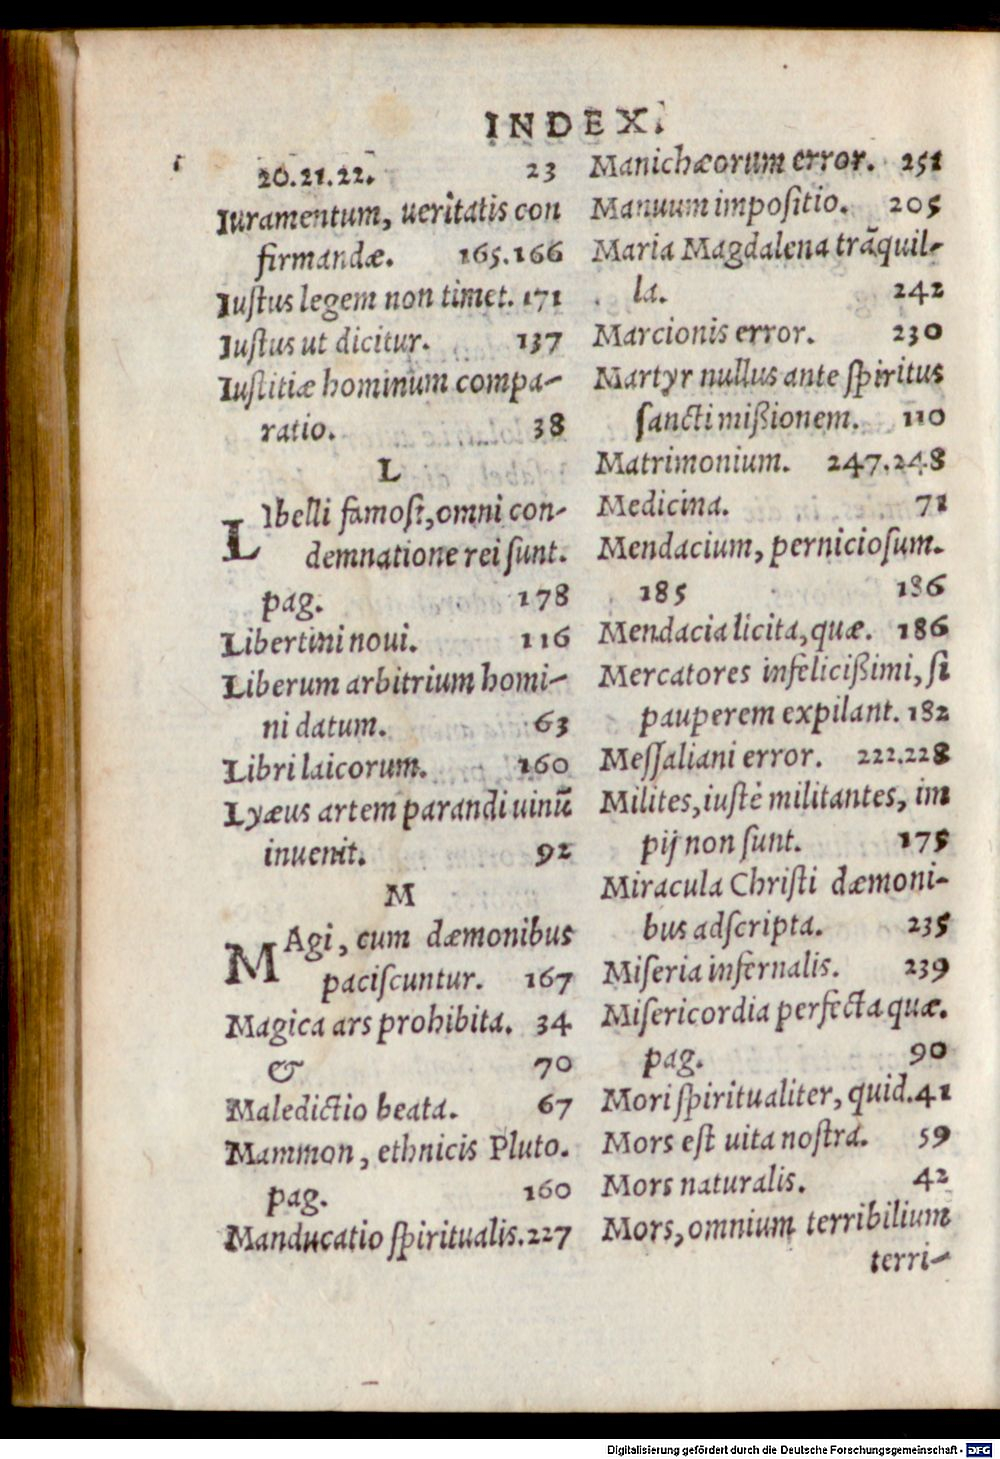 INDEX.
20.21.22. 23
Iuramentum, ueritatis con
firmandæ. 165.166
Iuſtus legem non timet. 171
Iuſtus ut dicitur. 137
Iuſtitiæ hominum compa-
ratio. 38
L
LIbelli famoſi, omni con-
demnatione rei ſunt.
pag. 178
Libertini noui. 116
Liberum arbitrium homi-
ni datum. 63
Libri laicorum. 160
Lyæus artem parandi uinū
inuenit. 92
M
MAgi, cum dæmonibus
paciſcuntur. 167
Magica ars prohibita. 34
& 70
Maledictio beata. 67
Mammon, ethnicis Pluto.
pag. 160
Manducatio ſpiritualis. 227
Manichæorum error. 251
Manuum impoſitio. 205
Maria Magdalena trāquil-
la. 242
Marcionis error. 230
Martyr nullus ante ſpiritus
ſancti mißionem. 110
Matrimonium. 247.248
Medicina. 71
Mendacium, pernicioſum.
185 186
Mendacia licita, quæ. 186
Mercatores infelicißimi, ſi
pauperem expilant. 182
Meſſaliani error. 222.228
Milites, iuſtè militantes, im
pij non ſunt. 175
Miracula Chriſti dæmoni-
bus adſcripta. 235
Miſeria infernalis. 239
Miſericordia perfecta quæ.
pag. 90
Mori ſpiritualiter, quid. 41
Mors eſt uita noſtra. 59
Mors naturalis. 42
Mors, omnium terribilium
terri-
Digitalisierung gefördert durch die Deutsche Forschungsgemeinschaft - DFG